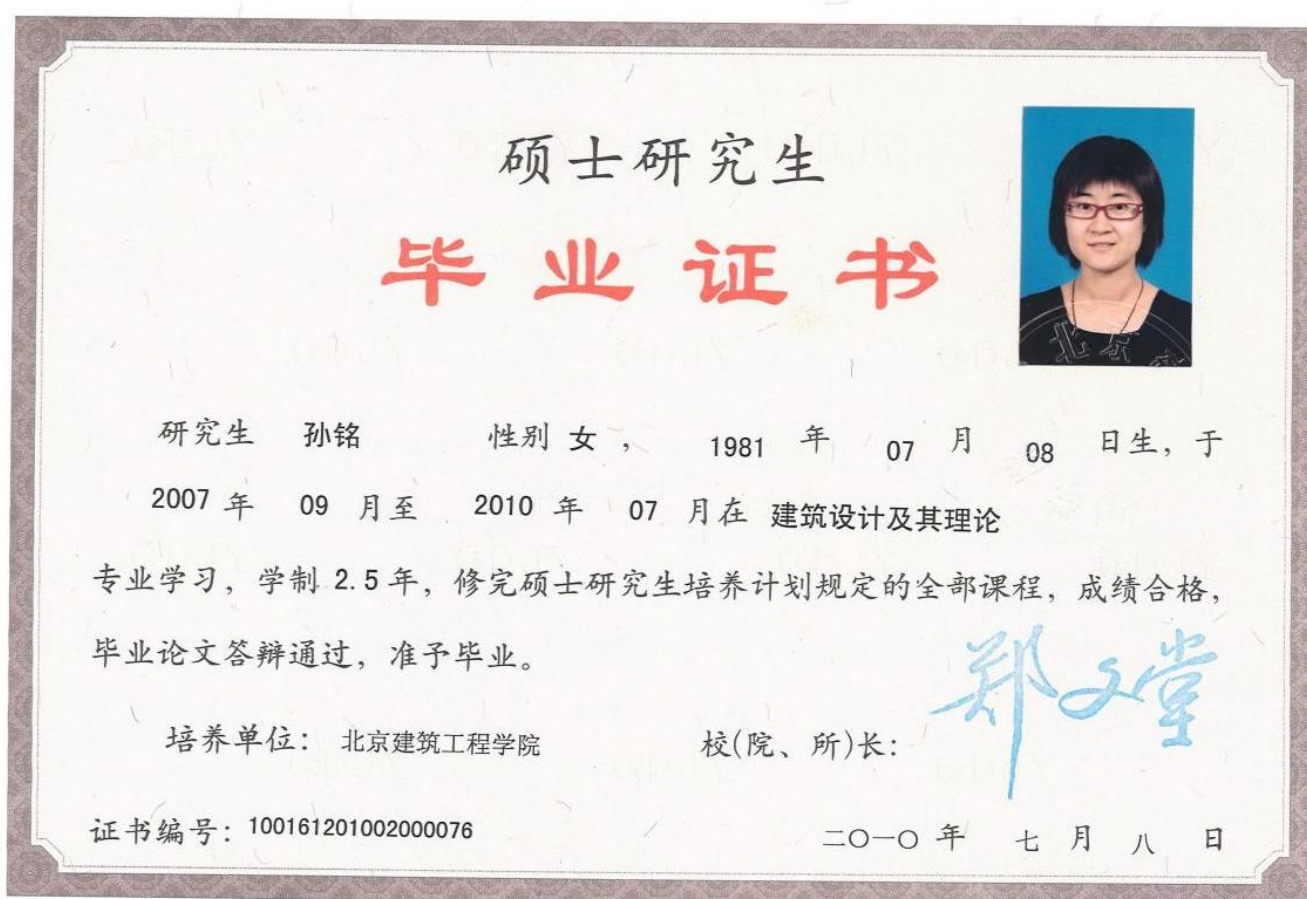 硕士研究生
毕业证书
研究生 孙铭 性别 女 , 1981 年 07 月 08 日生，于
2007 年 09 月至 2010 年 07 月在 建筑设计及其理论
专业学习，学制 2.5 年，修完硕士研究生培养计划规定的全部课程，成绩合格，
毕业论文答辩通过，准予毕业。
培养单位： 北京建筑工程学院 校(院、所)长： 郑文堂
证书编号：100161201002000076 二〇一〇 年 七 月 八 日
北京